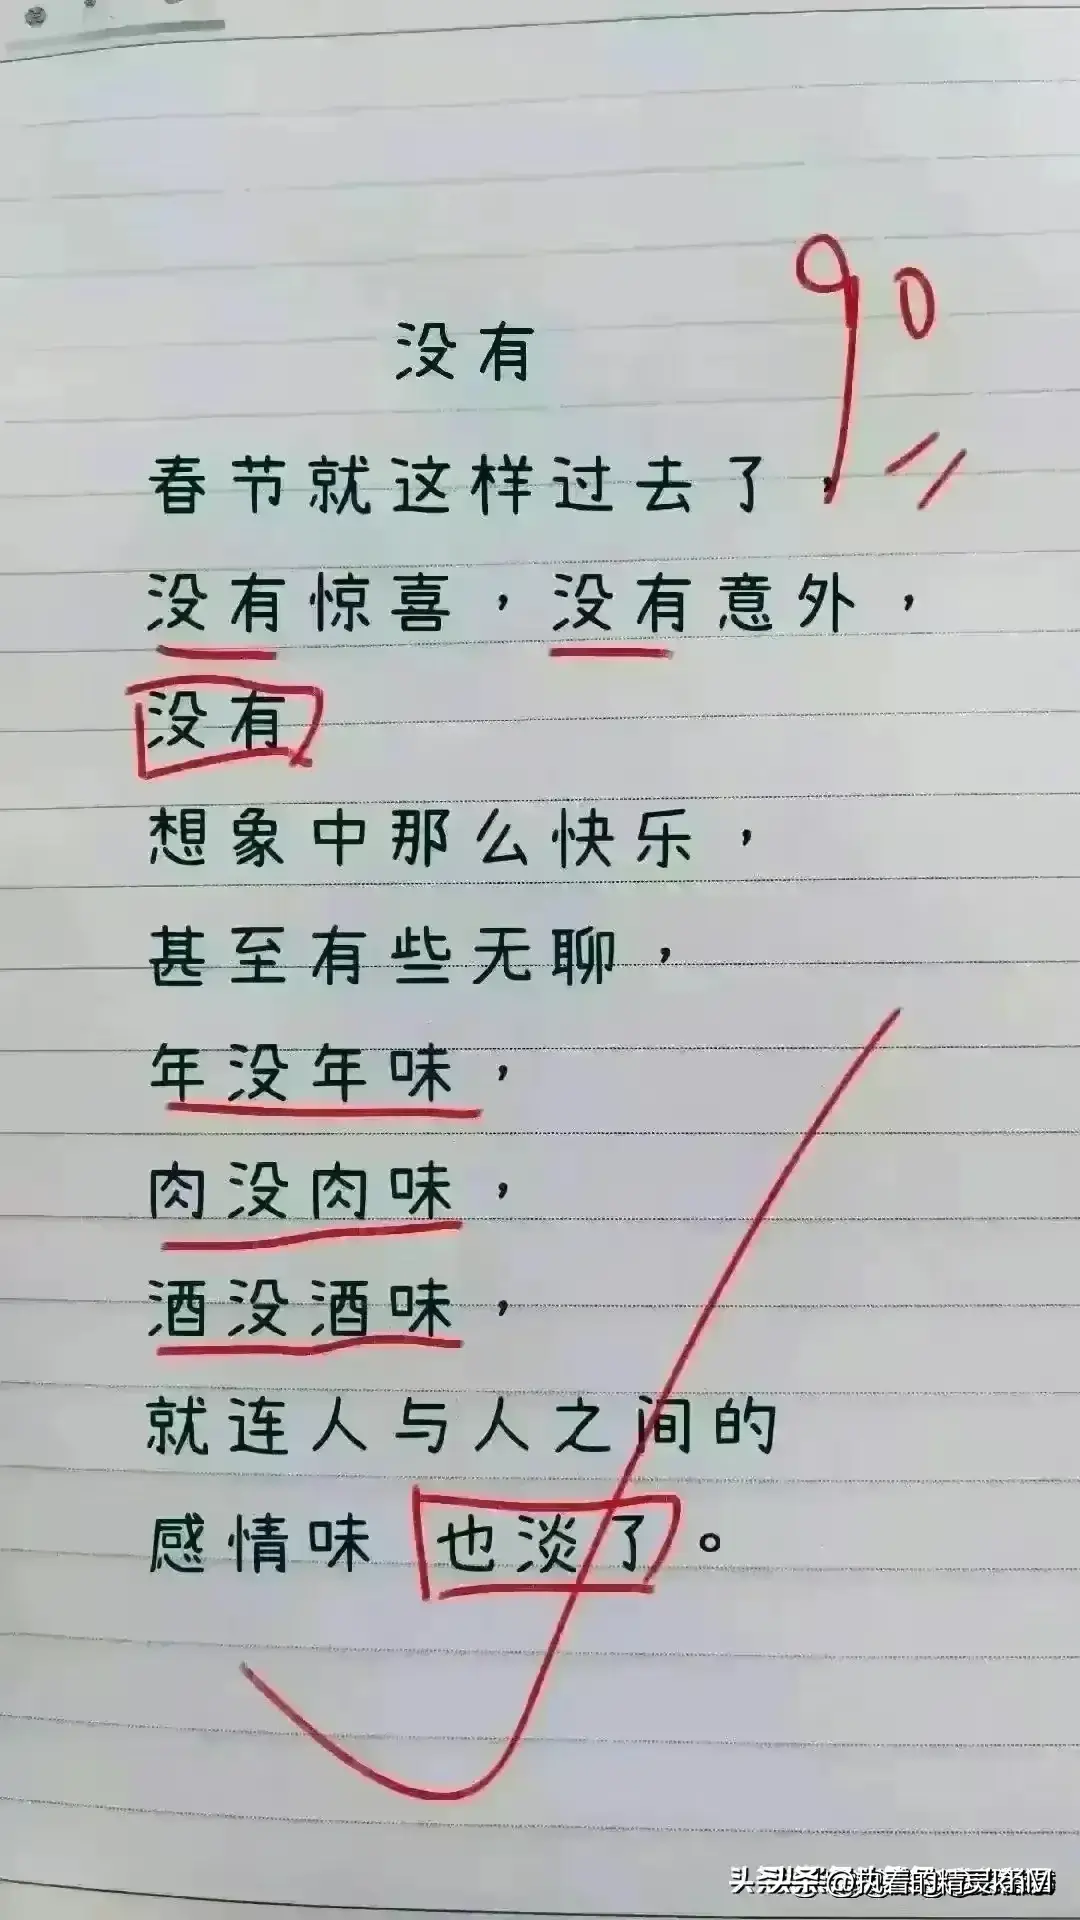 没有
90
春节就这样过去了，
没有惊喜，没有意外，
没有
想象中那么快乐，
甚至有些无聊，
年没年味，
肉没肉味，
酒没酒味，
就连人与人之间的
感情味也淡了。
头条 @执着的精灵